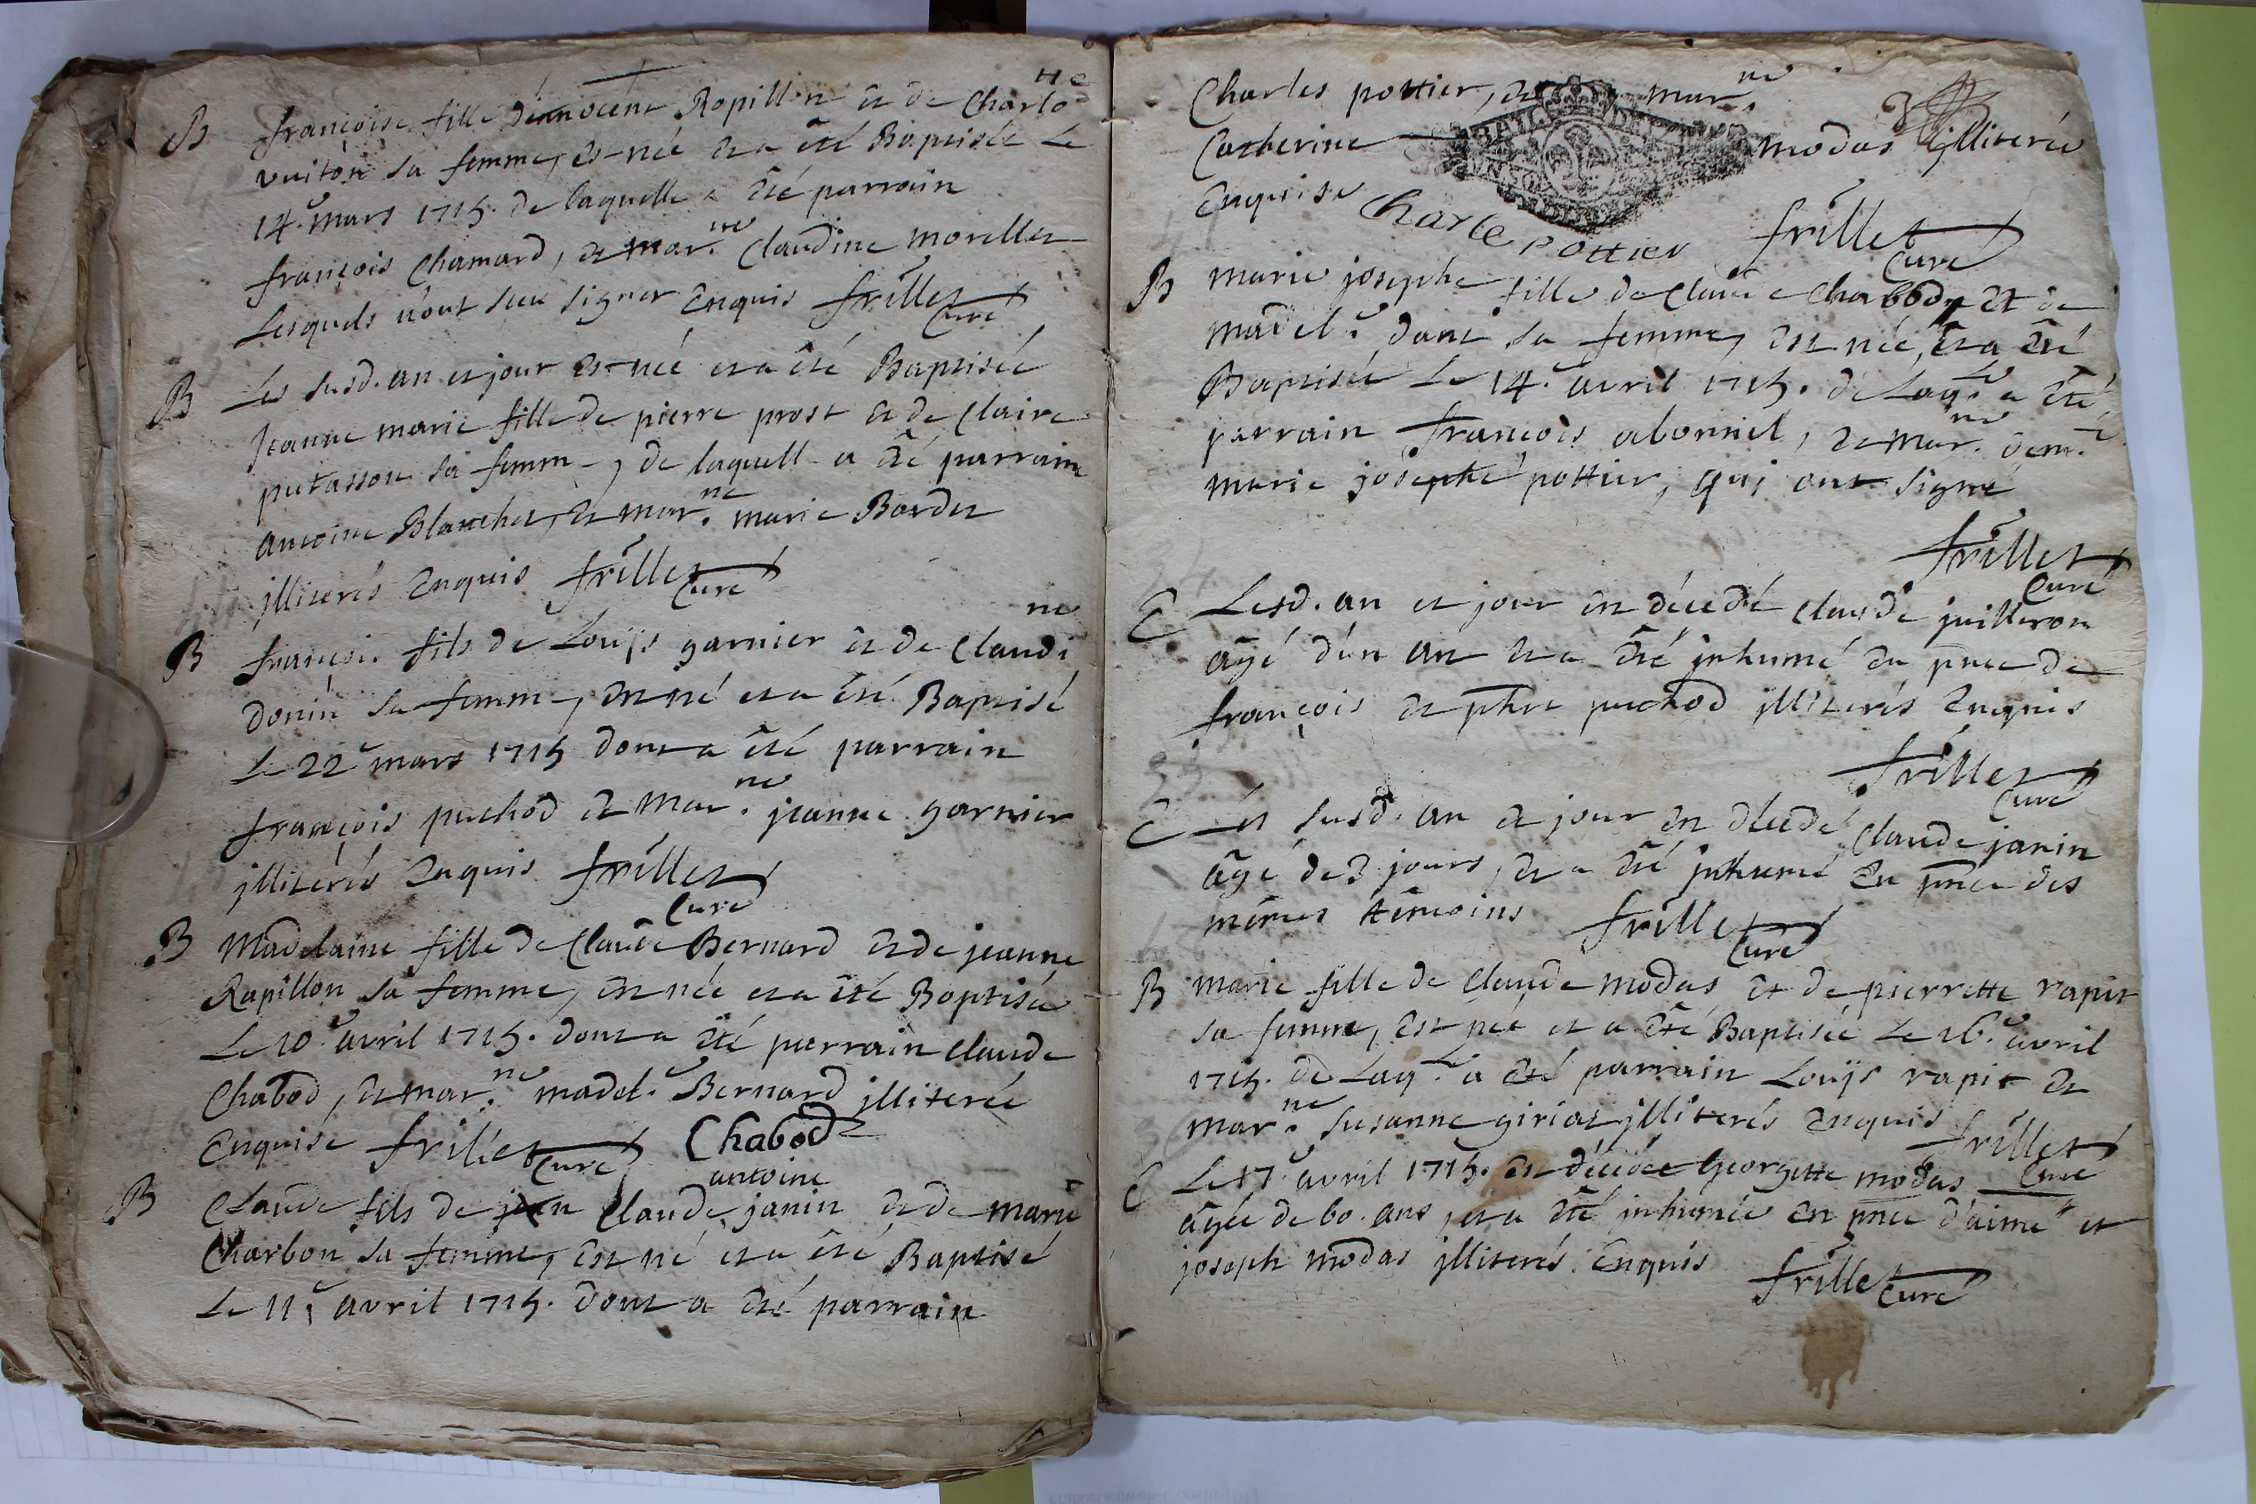 B françoise fille d'innocent Ropillon et de Charlotte
vuiton sa femme, est née et a été Baptisée Le
14.e mars 1715. de laquelle a été parrain
françois Chamard, et mar.ne Claudine morellet
Lesquels n'ont sceu signer Enquis frillet
Curé
B Les susd. an et jour est née et a été Baptisée
Jeanne marie fille de pierre prost et de Claire
putasson sa femme, de laquelle a été parrain
antoine Blanchet, et mar.ne marie Bordet
jlliterés Enquis frillet
Curé
B françois fils de Louÿs garnier et de Claudine
donin sa femme, est né et a été Baptisé
Le 22.e mars 1715 dont a été parrain
françois puchod et mar.ne jeanne garnier
jlliterés Enquis frillet
Curé
B Madelaine fille de Claude Bernard et de jeanne
Rapillon sa femme, est née et a été Baptisée
Le 10.e avril 1715. dont a été parrain claude
Chabod, et mar.ne madel.e Bernard jlliterée
Enquise frillet Curé Chabod
antoine
B Claude fils de jean Claude janin et de marie
Charbon sa femme, est né et a été Baptisé
Le 11.e avril 1715. dont a été parrain
Charles pottier, et mar.ne
Catherine modas jlliterée
Enquise Charle pottier frillet
Curé
B marie josephe fille de Claude Chabod, et de
madel.e dant sa femme, est née, et a été
Baptisée Le 14.e avril 1715. de Laq.le a été
parrain françois abonnel, et mar.ne dem.le
marie josephe pottier, qui ont signé
frillet
Curé
E Lesd. an et jour est décedé claude juilleron
âgé d'un an et a été jnhumé en pnce de
françois et phrt puchod jlliterés Enquis
frillet
Curé
E Les susd. an et jour est décedé Claude janin
âgé de 3 jours, et a été jnhumé En pnce des
mêmes témoins frillet
Curé
B marie fille de Claude modas et de pierrette rapit
sa femme, est née et a été Baptisée Le 16.e avril
1715. de Laq.le a été parrain Louÿs rapit et
mar.ne susanne giriat jlliterés Enquis
frillet
Curé
E Le 17.e avril 1715. est décedée Georgette modas
âgée de 60. ans, et a été jnhumée en pnce d'aimé et
joseph modas jlliterés Enquis frillet
Curé